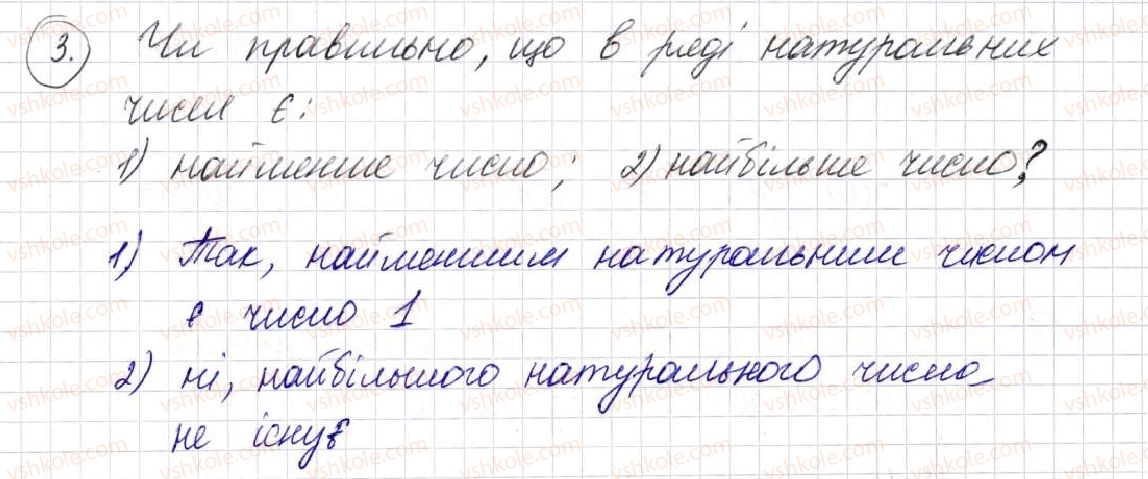 3. Чи правильно, що в ряді натуральних
чисел є:
1) найменше число; 2) найбільше число?
1) Так, найменшим натуральним числом
є число 1
2) ні, найбільшого натурального числа
не існує